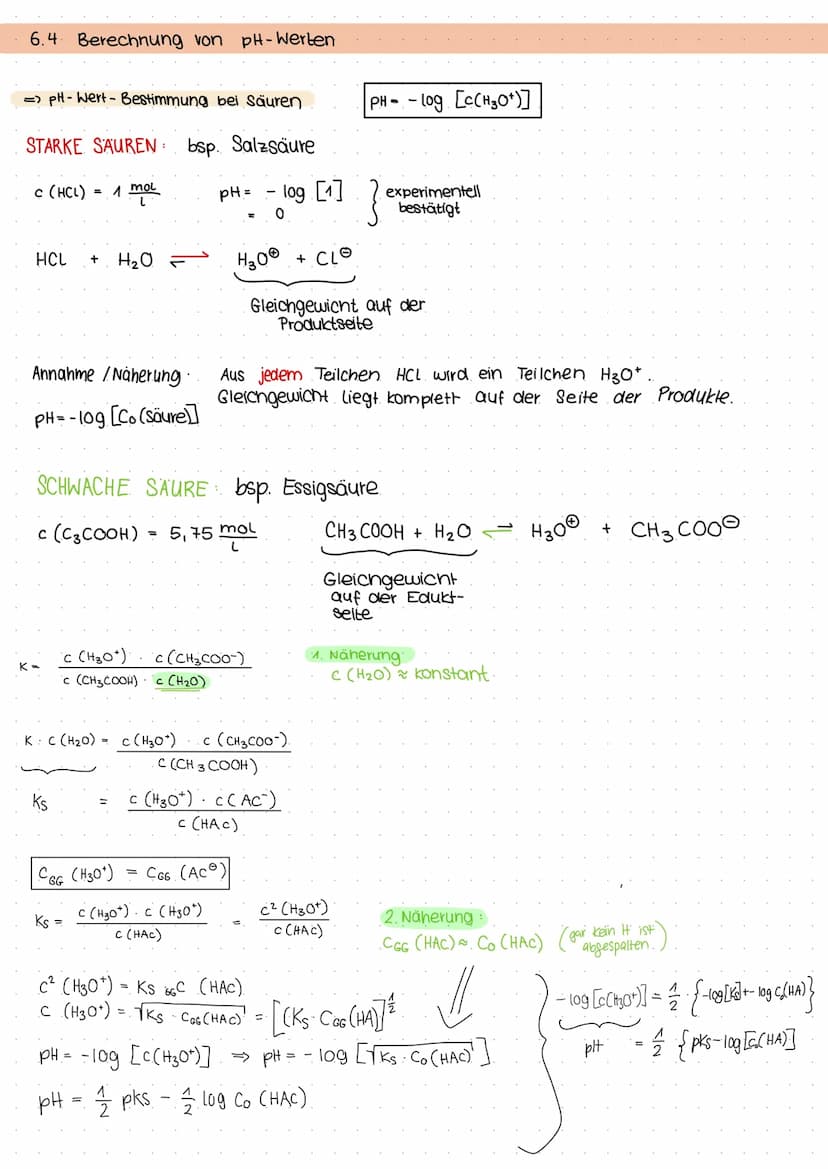 6.4 Berechnung von pH-Werten
=> pH-Wert-Bestimmung bei Säuren
pH = - log [c(H₃O⁺)]
STARKE SÄUREN: bsp. Salzsäure
c (HCL) = 1 mol/L
pH = - log [1]
= 0
} experimentell
bestätigt
HCL + H₂O ⇌ H₃O⊕ + CL⊖
Gleichgewicht auf der
Produktseite
Annahme / Näherung: Aus jedem Teilchen HCL wird ein Teilchen H₃O⁺.
Gleichgewicht liegt komplett auf der Seite der Produkte.
pH = -log [C₀(Säure)]
SCHWACHE SÄURE: bsp. Essigsäure
c (C₃COOH) = 5,75 mol/L
CH₃COOH + H₂O ⇌ H₃O⊕ + CH₃COO⊖
Gleichgewicht
auf der Edukt-
seite
K = c (H₃O⁺) · c (CH₃COO⁻) / c (CH₃COOH) · c (H₂O)
1. Näherung:
c (H₂O) ≈ konstant
K · c (H₂O) = c (H₃O⁺) · c (CH₃COO⁻) / c (CH₃COOH)
Ks = c (H₃O⁺) · c (AC⁻) / c (HAc)
C_GG (H₃O⁺) = C_GG (Ac⊖)
Ks = c (H₃O⁺) · c (H₃O⁺) / c (HAc) = c² (H₃O⁺) / c (HAc)
2. Näherung:
C_GG (HAc) ≈ C₀ (HAc) (gar kein H⁺ ist
abgespalten.)
c² (H₃O⁺) = Ks · _GG C (HAc)
c (H₃O⁺) = √Ks · C_GG (HAc) = [(Ks · C_GG (HA)]^½
pH = -log [c (H₃O⁺)] => pH = - log [√Ks · C₀ (HAc)]
pH = ½ pks - ½ log C₀ (HAc)
-log [c(H₃O⁺)] = ½ · {-log[Ks] + -log C₀(HA)}
pH = ½ {pks - log [C₀(HA)]